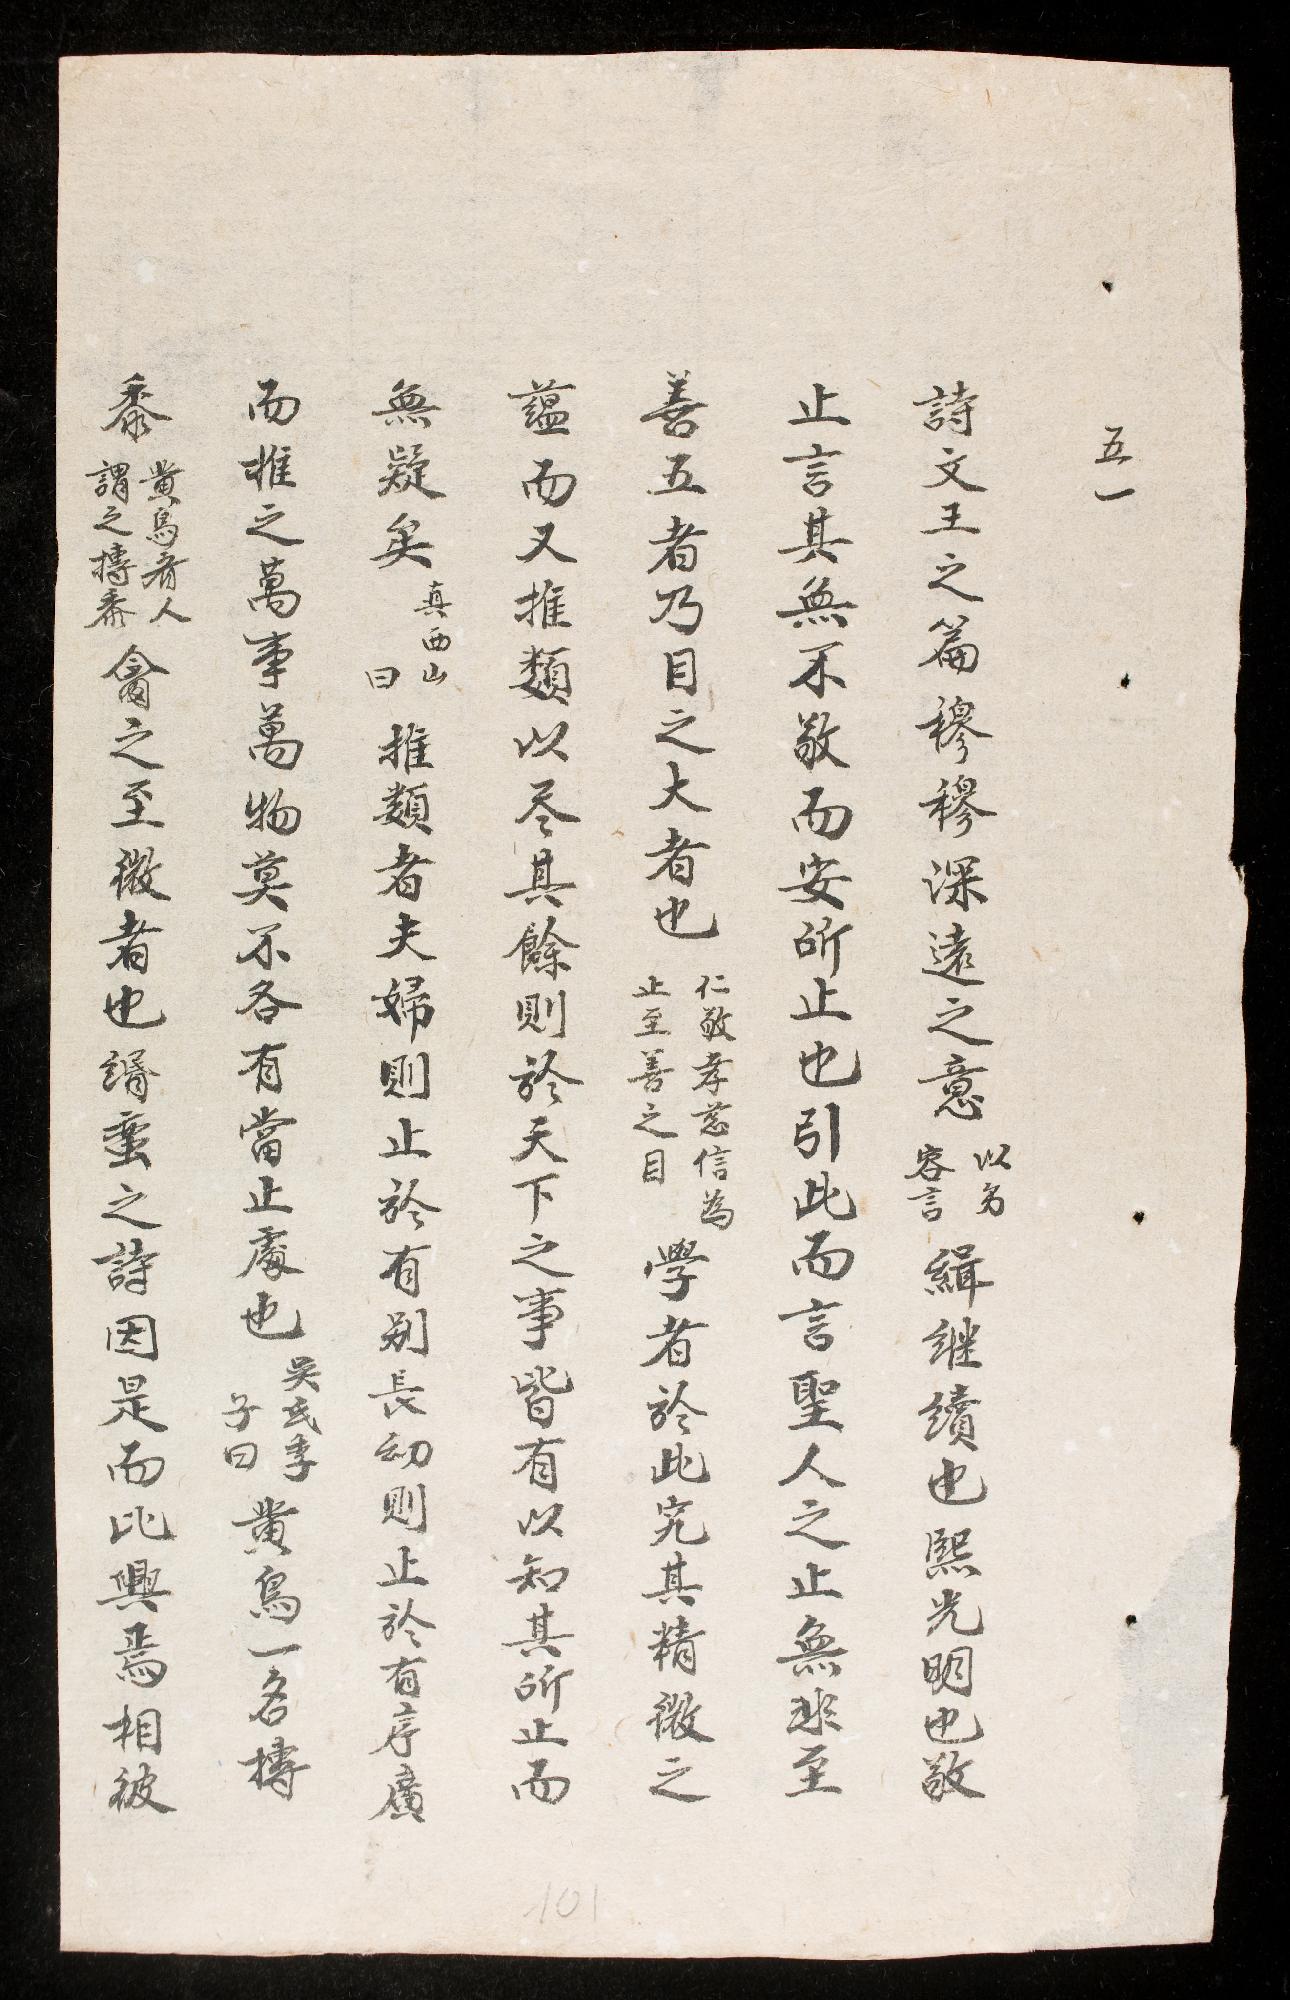 五一
詩文王之篇穆穆深遠之意以穷容言緝继續也熙光明也敬
止言其無不敬而安所止也引此而言聖人之止無非至
善五者乃目之大者也仁敬孝慈信為止至善之目學者於此究其精微之
蘊而又推類以尽其餘則於天下之事皆有以知其所止而
無疑矣真西山曰推類者夫婦則止於有别長幼則止於有序廣
而推之萬事萬物莫不各有當止處也吴氏季子曰黄鳥一名摶
黍黄鳥者人謂之摶黍禽之至微者也緡蛮之詩因是而比興焉相彼
101